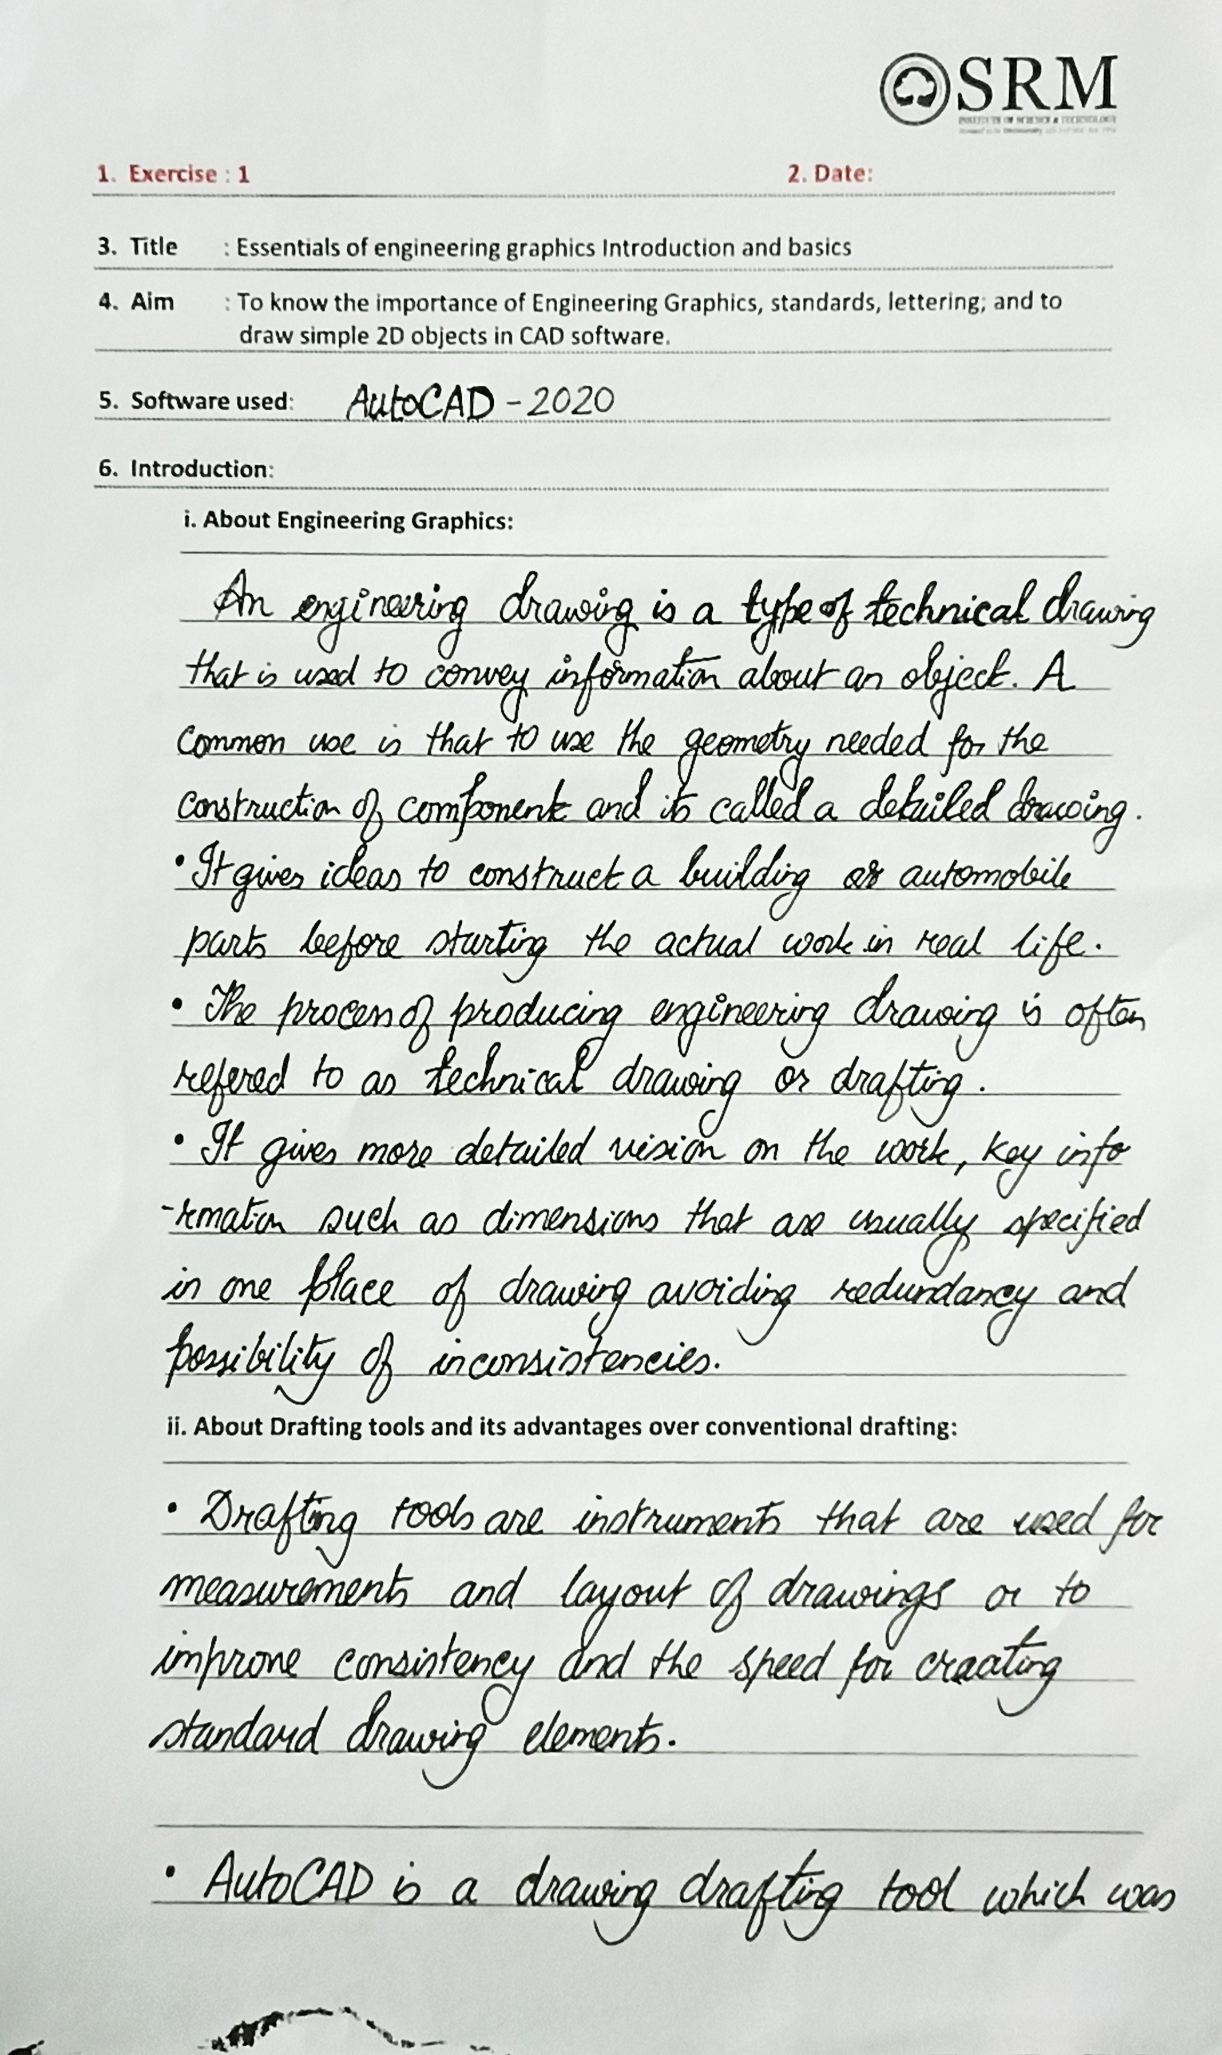 SRM
INSTITUTE OF SCIENCE & TECHNOLOGY
1. Exercise : 1 2. Date:
3. Title : Essentials of engineering graphics Introduction and basics
4. Aim : To know the importance of Engineering Graphics, standards, lettering; and to
draw simple 2D objects in CAD software.
5. Software used: AutoCAD - 2020
6. Introduction:
i. About Engineering Graphics:
An engineering drawing is a type of technical drawing
that is used to convey information about an object. A
common use is that to use the geometry needed for the
construction of component and its called a detailed drawing.
• It gives ideas to construct a building or automobile
parts before starting the actual work in real life.
• The process of producing engineering drawing is often
refered to as technical drawing or drafting.
• It gives more detailed vision on the work, key info
-rmation such as dimensions that are usually specified
in one place of drawing avoiding redundancy and
possibility of inconsistencies.
ii. About Drafting tools and its advantages over conventional drafting:
• Drafting tools are instruments that are used for
measurements and layout of drawings or to
improve consistency and the speed for creating
standard drawing elements.
• AutoCAD is a drawing drafting tool which was